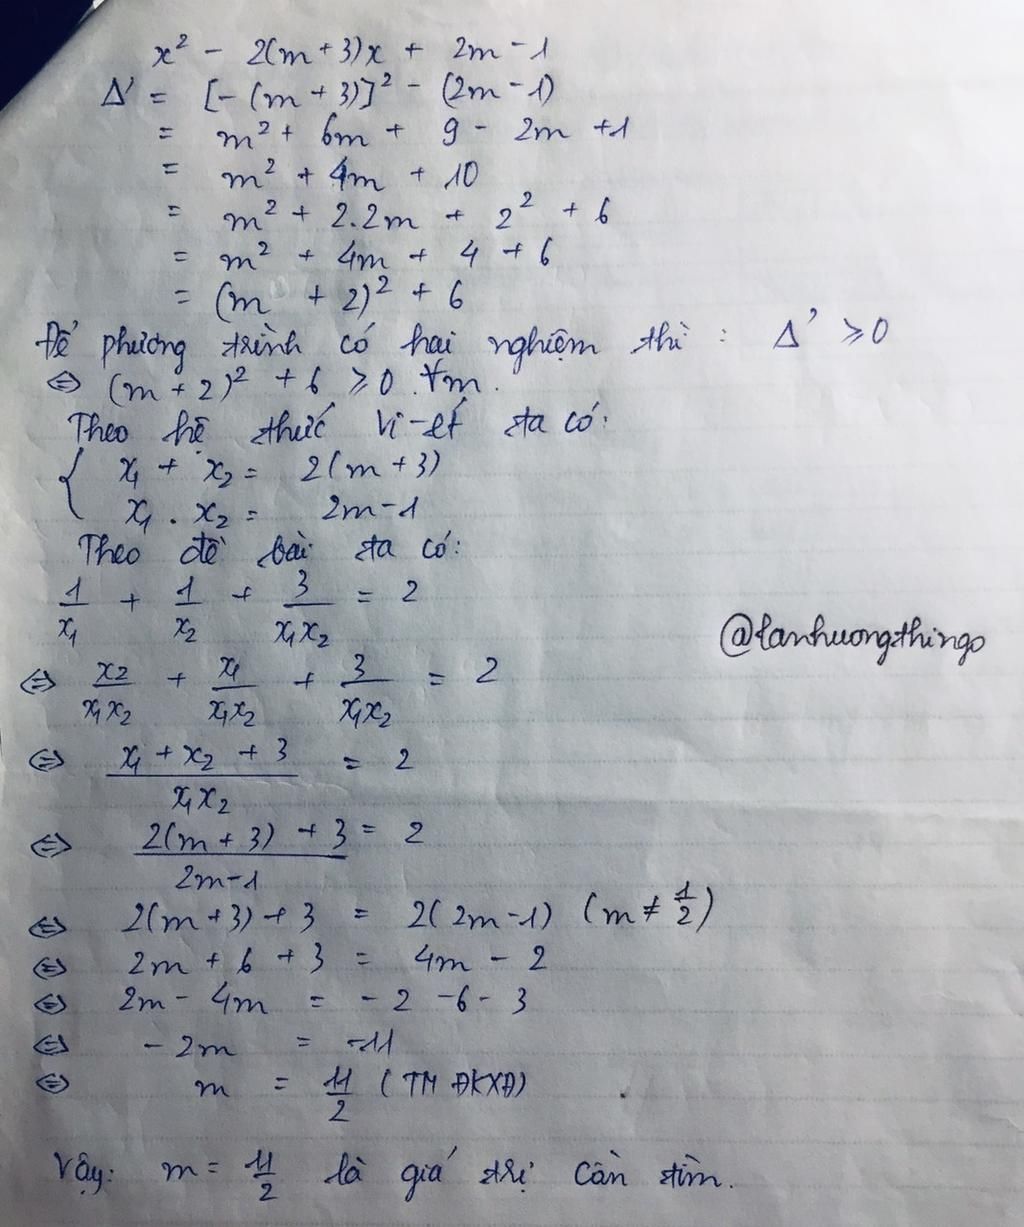 x² - 2(m+3)x + 2m-1
Δ' = [-(m+3)]² - (2m-1)
= m² + 6m + 9 - 2m +1
= m² + 4m + 10
= m² + 2.2m + 2² + 6
= m² + 4m + 4 + 6
= (m + 2)² + 6
Để phương trình có hai nghiệm thì : Δ' ≥ 0
⇔ (m+2)² + 6 ≥ 0 ∀m.
Theo hệ thức Vi-ét ta có:
{ x₁ + x₂ = 2(m+3)
x₁ . x₂ = 2m-1
Theo đề bài ta có:
1/x₁ + 1/x₂ + 3/x₁x₂ = 2
@lanhuongthingo
⇔ x₂/x₁x₂ + x₁/x₁x₂ + 3/x₁x₂ = 2
⇔ (x₁ + x₂ + 3)/x₁x₂ = 2
⇔ (2(m+3) + 3)/(2m-1) = 2
⇔ 2(m+3)+3 = 2(2m-1) (m ≠ 1/2)
⇔ 2m + 6 + 3 = 4m - 2
⇔ 2m - 4m = -2 -6 - 3
⇔ -2m = -11
⇔ m = 11/2 (TM ĐKXĐ)
Vậy: m = 11/2 là giá trị cần tìm.